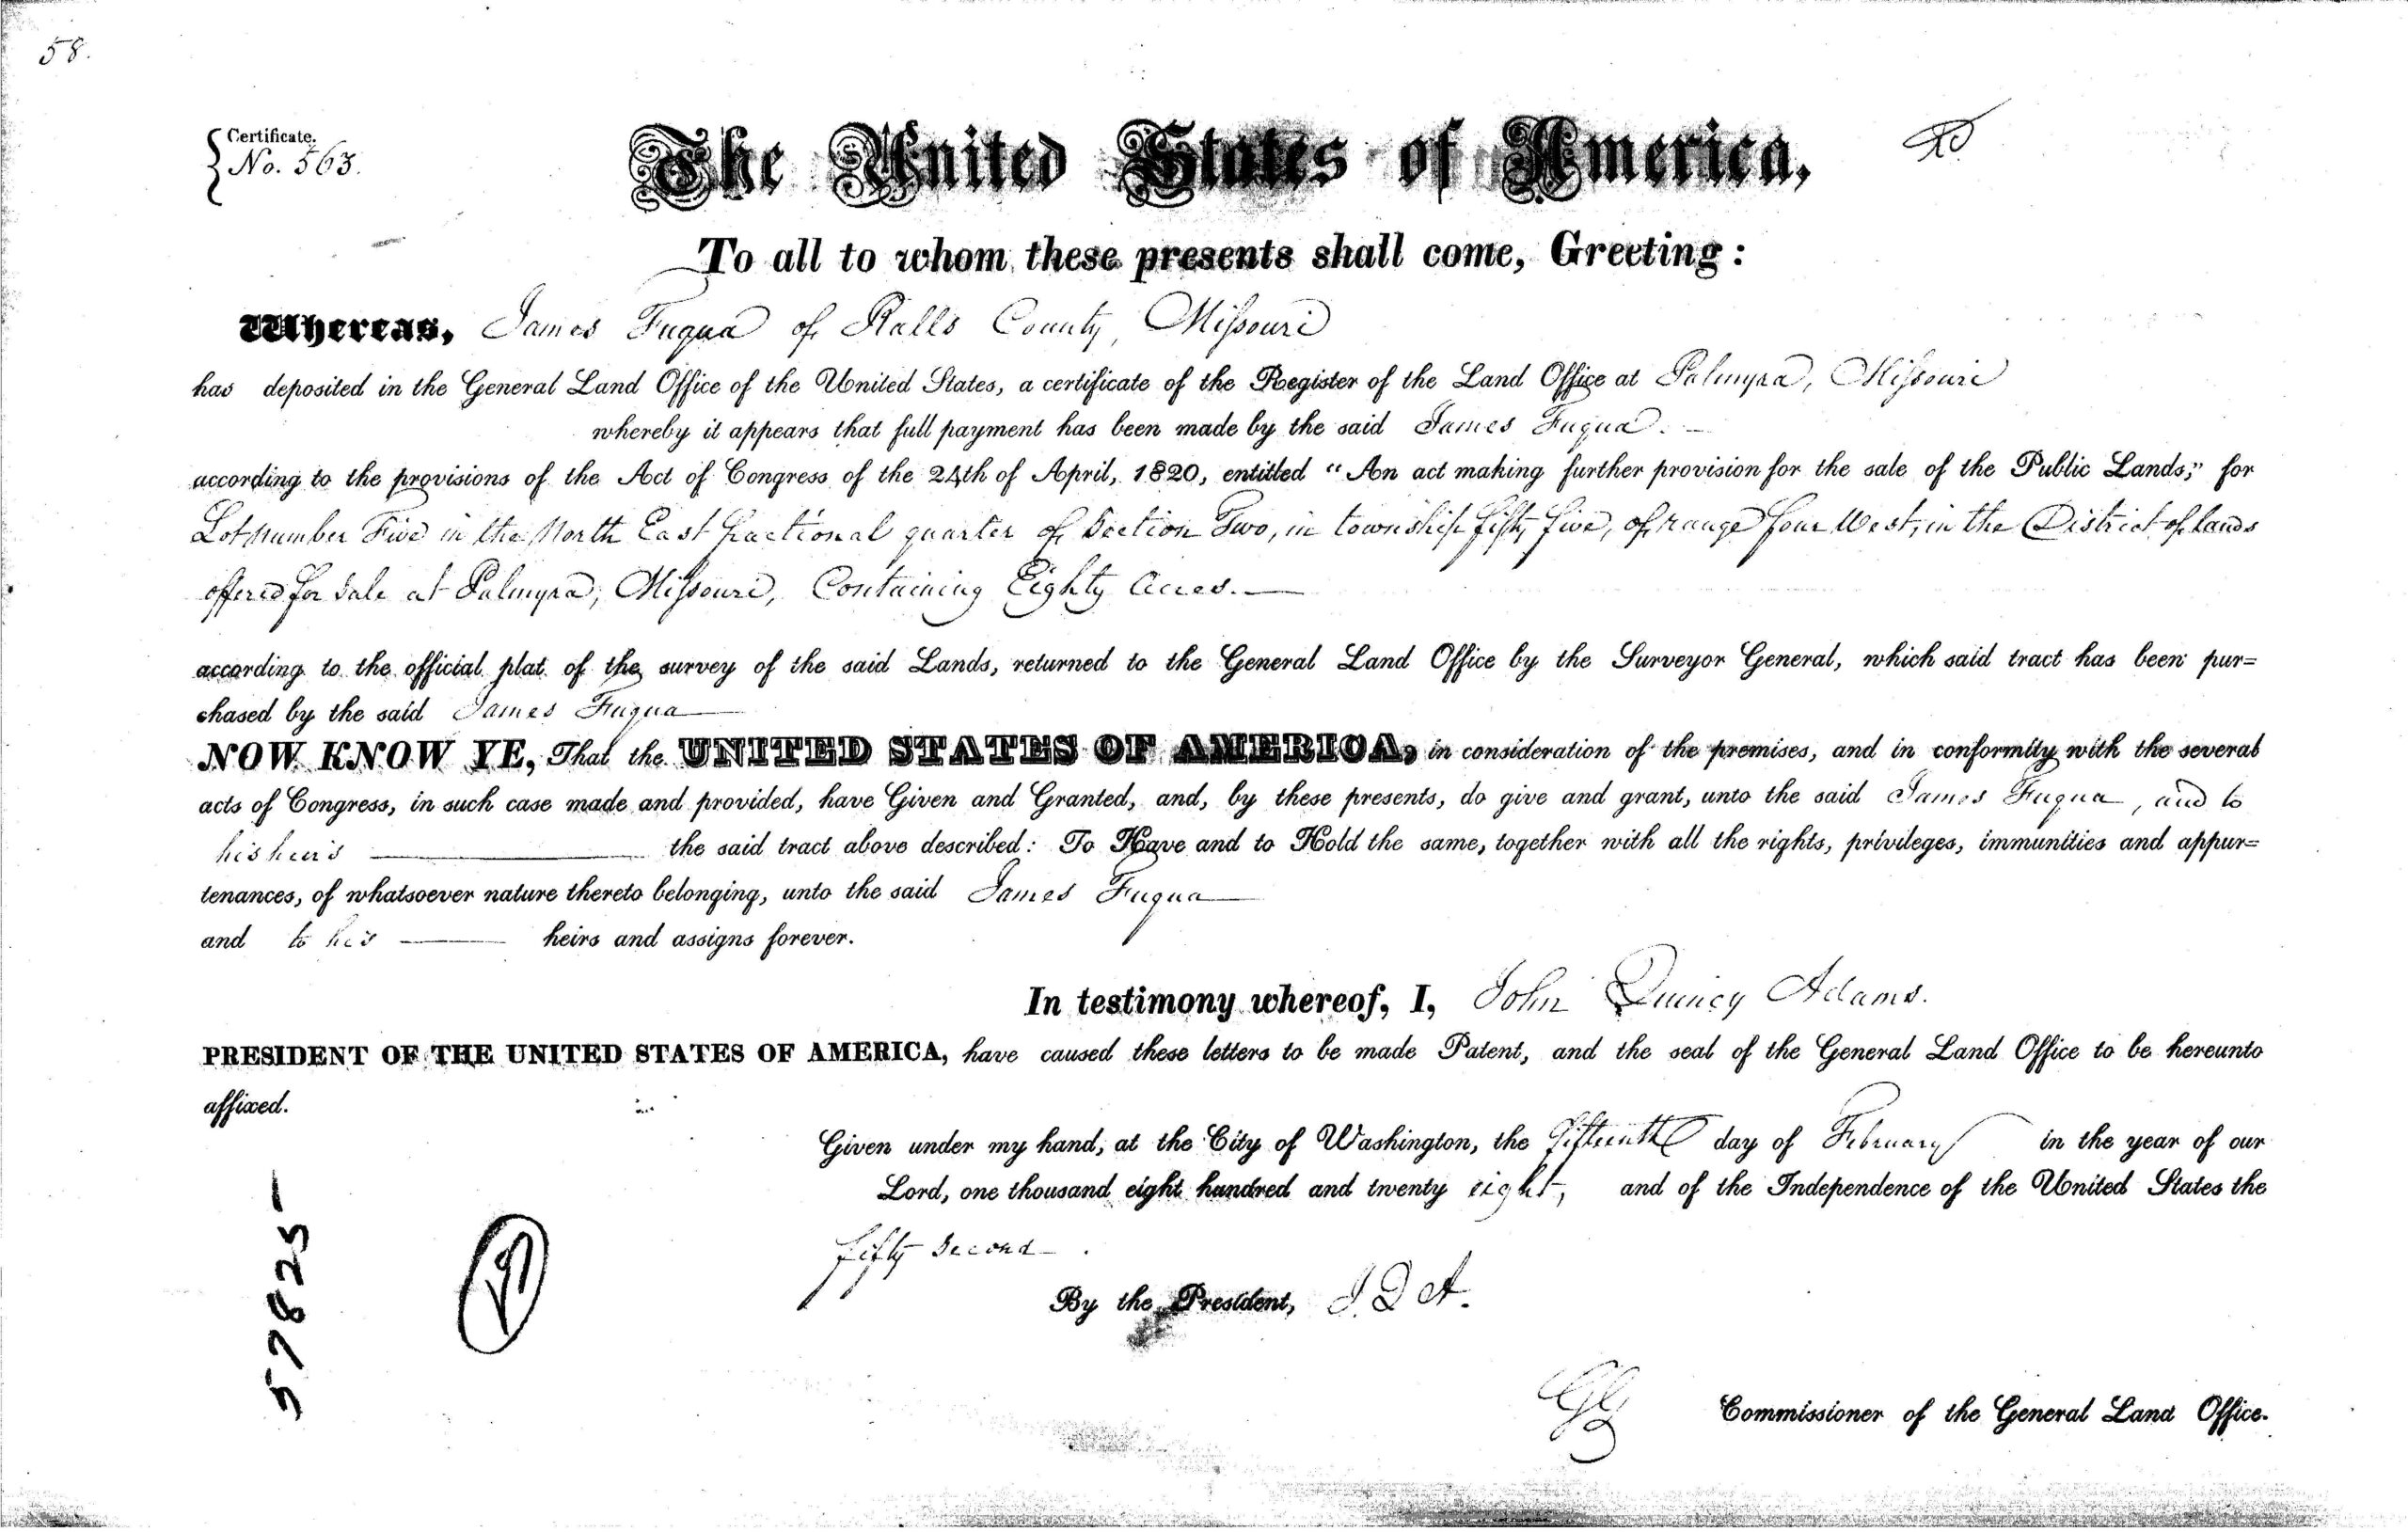 58.
Certificate.
No. 563.
The United States of America,
To all to whom these presents shall come, Greeting:
Whereas, James Fuqua of Ralls County, Missouri
has deposited in the General Land Office of the United States, a certificate of the Register of the Land Office at Palmyra, Missouri
whereby it appears that full payment has been made by the said James Fuqua.
according to the provisions of the Act of Congress of the 24th of April, 1820, entitled "An act making further provision for the sale of the Public Lands;" for
Lot number Five in the North East fractional quarter of Section Two, in township fifty five, of range four West, in the District of lands
offered for sale at Palmyra, Missouri, Containing Eighty Acres.—
according to the official plat of the survey of the said Lands, returned to the General Land Office by the Surveyor General, which said tract has been pur=
chased by the said James Fuqua
NOW KNOW YE, That the UNITED STATES OF AMERICA, in consideration of the premises, and in conformity with the several
acts of Congress, in such case made and provided, have Given and Granted, and, by these presents, do give and grant, unto the said James Fuqua, and to
his heirs the said tract above described: To Have and to Hold the same, together with all the rights, privileges, immunities and appur=
tenances, of whatsoever nature thereto belonging, unto the said James Fuqua
and to his heirs and assigns forever.
In testimony whereof, I, John Quincy Adams.
PRESIDENT OF THE UNITED STATES OF AMERICA, have caused these letters to be made Patent, and the seal of the General Land Office to be hereunto
affixed.
Given under my hand, at the City of Washington, the fifteenth day of February in the year of our
Lord, one thousand eight hundred and twenty eight, and of the Independence of the United States the
fifty second.
By the President, J. Q. A.
Commissioner of the General Land Office.
57825